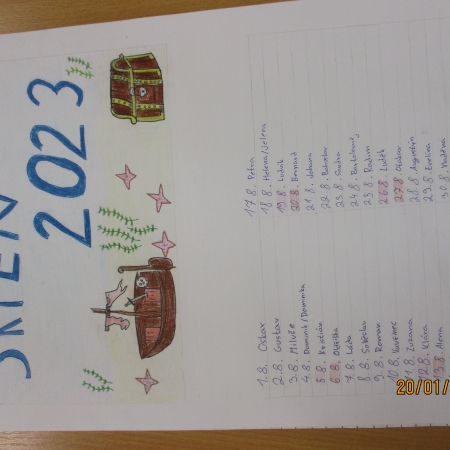 SRPEN
2023
1.8. Oskar
2.8. Gustav
3.8. Miluše
4.8. Dominik/Dominika
5.8. Kristián
6.8. Oldřiška
7.8. Lada
8.8. Soběslav
9.8. Roman
10.8. Vavřinec
11.8. Zuzana
12.8. Klára
13.8. Alena
17.8. Petra
18.8. Helena/Jelena
19.8. Ludvík
20.8. Bernard
21.8. Johana
22.8. Bohuslav
23.8. Sandra
24.8. Bartoloměj
25.8. Radim
26.8. Luděk
27.8. Otakar
28.8. Augustýn
29.8. Evelína
30.8. Vladěna
20/01/